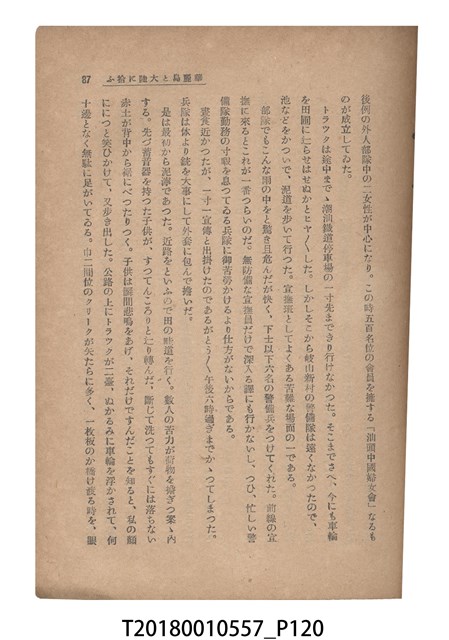 87 華麗島と大陸に拾ふ
後例の外人部隊中の二女性が中心になり。この時五百名位の會員を擁する「汕頭中國婦女會」なるも
のが成立してゐた。
トラックは途中まで、潮汕鐵道停車場の一寸先まできり行けなかつた。そこまでさへ、今にも車輪
を田圃に辷らせはせぬかとヒヤ〳〵した。しかしそこから岐山新村の警備隊は遠くなかつたので、
池などをかついで、泥道を歩いて行つた。宣撫班としてよくある苦難な場面の一である。
部隊でもこんな雨の中をと驚き且危んだが快く、下士以下六名の警備兵をつけてくれた。前線の宣
撫に來るとこれが一番つらいのだ。無防備な宣撫員だけで深入る譯にも行かないし、つひ、忙しい警
備隊勤務の寸暇を息つてゐる兵隊に御苦勞かけるより仕方がないからである。
裏〻近かつたが、一寸一宣傳と出掛けたのであるがとう〳〵午後六時過ぎまでかゝつてしまつた。
兵隊は体より銃を大事にして外套に包んで擔いだ。
是は最初から泥濘であつた。近路をといふので田の畦道を行く。數人の苦力が荷物を擔ぎつ案ゝ內
する。先づ蓄音器を持つた子供が、すつてんころりと辷り轉んだ。斷じて洗つてもすぐには落ちない
赤土が背中から裾にべつたりつく。子供は瞬間悲鳴をあげ、それだけですんだことを知ると、私の顏
ににつと笑ひかけて、又歩き出した。公路の上にトラックが二臺、ぬかるみに車輪を浮かされて、何
十邊となく無駄に足がいてゐる。巾二間位のクリークが矢たらに多く、一枚板の か橋を渡る時を、眼
T20180010557_P120